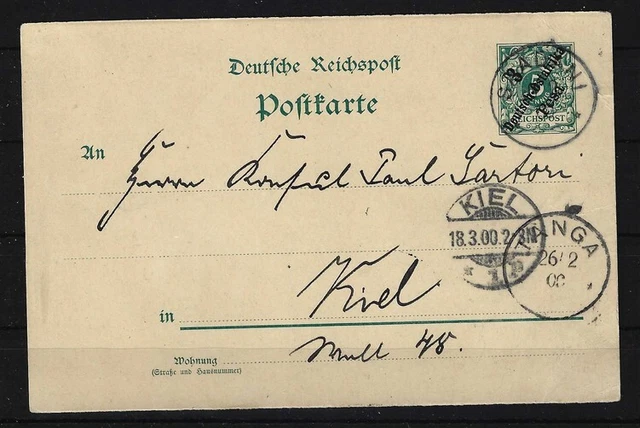 Deutsche Reichspost
Postkarte
SAADANI
3
Deutsch-Ostafrika
Pesa
REICHSPOST
An
Herrn Konsul Paul Sartori
KIEL
18.3.00.2-3N
* 1 b
TANGA
26/2
00
in Kiel
Wohnung
(Straße und Hausnummer)
Wall 48.